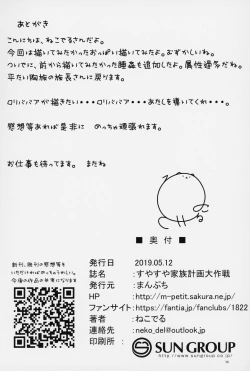 あとがき
こんにちは、ねこでるさんだよ。
今回は描いてみたかったおっぱい描いてみたよ。むずかしいね。
ついでに、前から描いてみたかった睡姦も追加したよ。属性過多だね。
平たい胸族の族長さんに戻ります。
ロリババアが描きたい・・・ロリババア・・・あたしを導いてくれ・・・。
感想等あれば是非に めっちゃ頑張れます。
お仕事も待ってます。 またね
■ 奥 付 ■
新刊、既刊の感想等を
いただければめっちゃうれしい。
今後の作品の参考になります
発行日 2019.05.12
誌名 :すやすや家族計画大作戦
発行元 :まんぷち
HP :http://m-petit.sakura.ne.jp/
ファンサイト:https://fantia.jp/fanclubs/1822
著者 :ねこでる
連絡先 :neko_del@outlook.jp
印刷所 :
SUN GROUP
http://www.sungroup.co.jp/